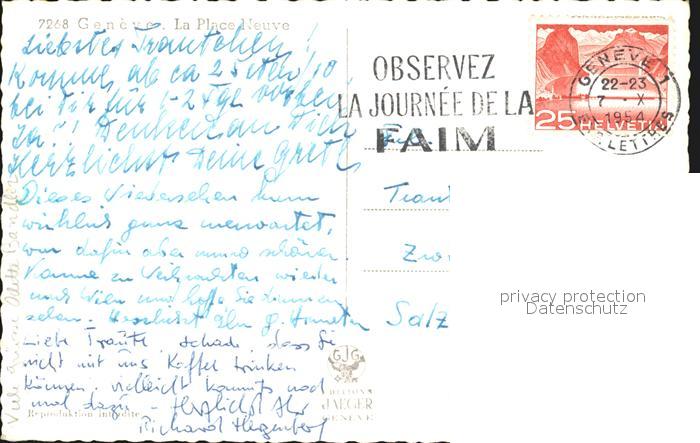 7268 Genève. La Place Neuve
Liebstes Trautchen!
Komme ab ca 25ten/10
bei Dir für 1-2 Tge vorbei
Ja?! Denken an Dich
Herzlichst Deine Gretl
Dieses Wiedersehen kam
wirklich ganz unerwartet,
war dafür aber umso schöner.
Komme zu Weihnachten wieder
nach Wien und hoffe Sie dann zu
sehen. Herzlichst Ihr
Liebe Traute, schade, dass Sie
nicht mit uns Kaffee trinken
können. vielleicht kommts noch
mal dazu - Herzlichst Ihr
Richard
Reproduktion interdite
OBSERVEZ
LA JOURNÉE DE LA
FAIM
GENEVE 1
22-23
7 · X
1954
LETTRES
25 HELVETIA
Traut
Salz
GJG
EDITIONS
JAEGER
GENEVE
privacy protection
Datenschutz